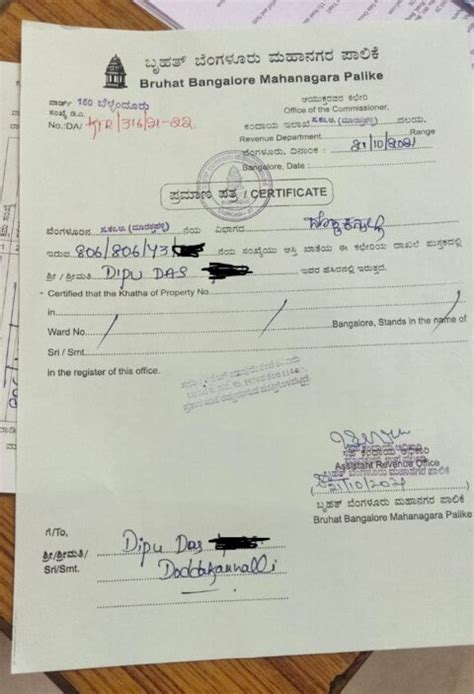 ಬೃಹತ್ ಬೆಂಗಳೂರು ಮಹಾನಗರ ಪಾಲಿಕೆ
Bruhat Bangalore Mahanagara Palike
ವಾರ್ಡ್ 150 ಬೆಳ್ಳಂದೂರು
ಸಂಖ್ಯೆ ಡಿ.ಎ.
No.:DA/ KTR/316/21-22
ಆಯುಕ್ತರವರ ಕಛೇರಿ
Office of the Commissioner,
ಕಂದಾಯ ಇಲಾಖೆ ವಲಯ,
Revenue Department Range
ಬೆಂಗಳೂರು, ದಿನಾಂಕ : 21/10/2021
Bangalore, Date :
ಪ್ರಮಾಣ ಪತ್ರ / CERTIFICATE
ಬೆಂಗಳೂರಿನ ನೆಯ ವಿಭಾಗದ
ಇರುವ 806/806/43 ನೆಯ ಸಂಖ್ಯೆಯು ಆಸ್ತಿ ಖಾತೆಯ ಈ ಕಛೇರಿಯ ದಾಖಲೆ ಪುಸ್ತಕದಲ್ಲಿ
ಶ್ರೀ / ಶ್ರೀಮತಿ DIPU DAS ಇವರ ಹೆಸರಿನಲ್ಲಿ ಇರುತ್ತದೆ.
Certified that the Khatha of Property No
in
Ward No Bangalore, Stands in the name of
Sri / Smt.
in the register of this office.
Assistant Revenue Office
21/10/2021
ಬೃಹತ್ ಬೆಂಗಳೂರು ಮಹಾನಗರ ಪಾಲಿಕೆ
Bruhat Bangalore Mahanagara Palike
ಗೆ/To,
ಶ್ರೀ/ಶ್ರೀಮತಿ/ Dipu Das
Sri/Smt. Doddakannalli